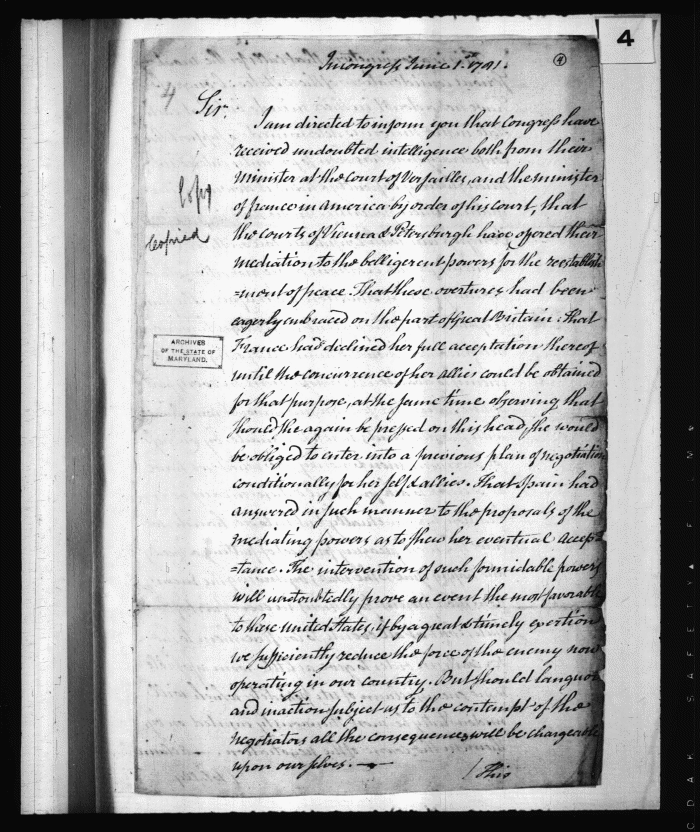 4
In Congress June 1. 1781.
4
4
Sir.
I am directed to inform you that Congress have
received undoubted intelligence both from their
Minister at the Court of Versailles, and the minister
of france in America by order of his court, that
Copy
the Courts of Vienna & Petersburgh have offered their
Copied
mediation to the belligerent powers for the reestablish
=ment of peace. That these overtures had been
eagerly embraced on the part of Great Britain: That
ARCHIVES
OF THE STATE OF
MARYLAND.
France had declined her full acceptation thereof
until the concurrence of her allies could be obtained
for that purpose, at the same time observing that
should she again be pressed on this head, she would
be obliged to enter into a previous plan of negotiation
conditionally for her self & allies. That Spain had
answered in such manner to the proposals of the
mediating powers as to shew her eventual accep=
=tance. The intervention of such formidable powers
will undoubtedly prove an event the most favorable
to these united States, if by a great & timely exertion
we sufficiently reduce the force of the enemy now
operating in our country. But should languor
and inaction subject us to the contempt of the
negotiators all the consequences will be chargeable
upon ourselves. —
/ This